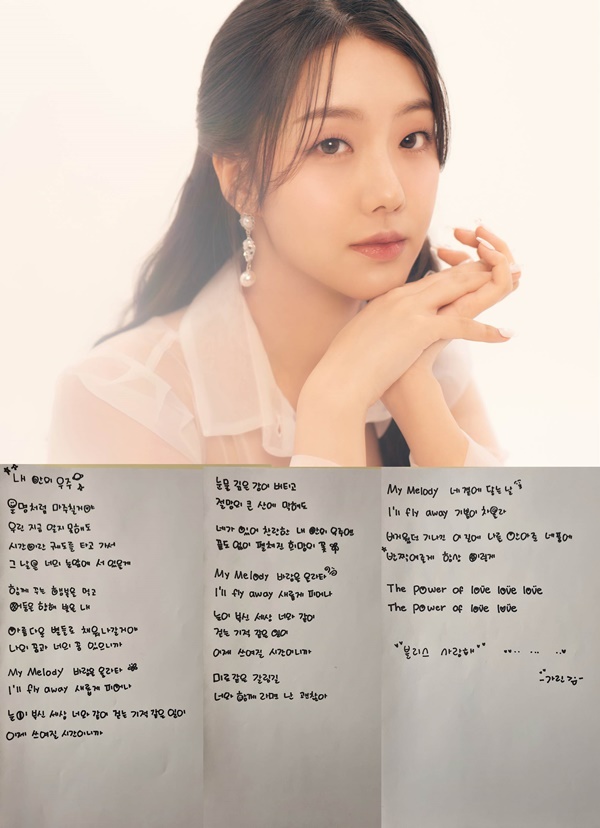 내 안의 우주
운명처럼 마주칠거야
우린 지금 알지 못해도
시간이란 궤도를 타고 가서
그 날은 너의 눈앞에 서 있을게
함께 꾸는 행복을 먹고
어둠을 향해 내
아름다운 별들로 채워나갈거야
나의 꿈과 너의 꿈 있으니까
My Melody 바람을 올라타
I'll fly away 새롭게 피어나
눈이 부신 세상 너와 같이 걷는 기적 같은 일이
이제 쓰여질 시간이니까
눈물 깊은 강이 버티고
절망의 큰 산에 막혀도
네가 있어 찬란한 내 안의 우주에
끝도 없이 펼쳐진 희망의 꽃
My Melody 바람을 올라타
I'll fly away 새롭게 피어나
눈이 부신 세상 너와 같이
걷는 기적 같은 일이
이제 쓰여질 시간이니까
미로같은 갈림길
너와 함께 라면 난 괜찮아
My Melody 네 곁에 닿는 날
I'll fly away 기분이 차올라
버거웠던 지나간 이 길에 나를 안아준 네 품에
반짝여줄게 항상 이렇게
The power of love love love
The power of love love
블리스 사랑해
-가린 김-